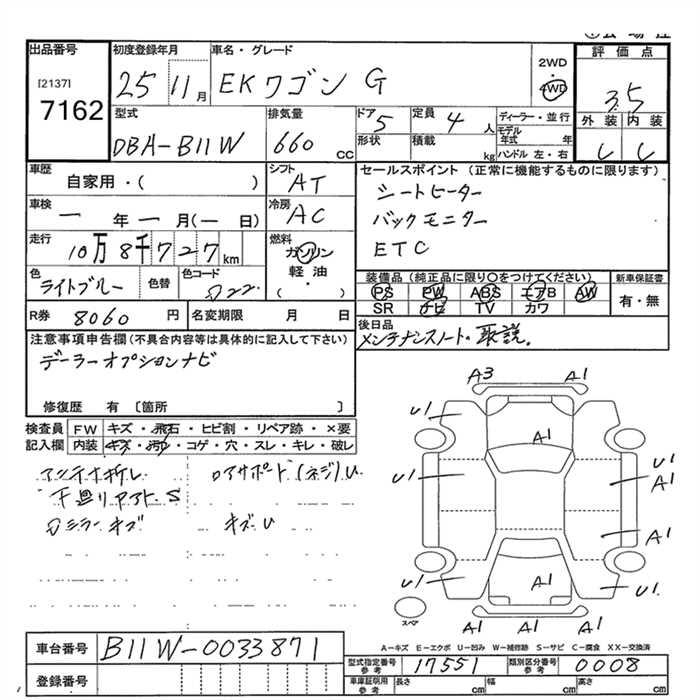 出品番号
[2137]
7162
初度登録年月
25 11月
車名・グレード
EKワゴン G
2WD
4WD
評価点
3.5
外装 内装
C C
型式
DBA-B11W
排気量
660 CC
ドア 5
形状
定員 4人
積載 kg
ディーラー・並行
モデル年式 年
ハンドル 左・右
車歴
自家用・( )
シフト
AT
車検
一年一月(一日)
冷房
AC
走行
10万8千727km
燃料
ガソリン
軽油
( )
色
ライトブルー
色替
色コード
セールスポイント (正常に機能するものに限ります)
シートヒーター
バックモニター
ETC
装備品 (純正品に限り○をつけてください)
PS PW ABS エアB AW
SR ナビ TV カワ
新車保証書
有・無
R券 8060円
名変期限 月 日
後日品
メンテナンスノート・取説.
注意事項申告欄 (不具合内容等は具体的に記入して下さい)
デーラーオプションナビ
修復歴 有 〔箇所 〕
検査員
記入欄
FW キズ・飛石・ヒビ割・リペア跡・×要
内装 キズ・汚れ・コゲ・穴・スレ・キレ・破レ
アンテナ折レ
ロアサポート(ネジ)U
下廻リ S
ミラーキズ
キズU
A3 A1
U1 U1
A1
U1 U1
A1
A1
U1 A1 U1
A1 A1
スペア
A−キズ E−エクボ U−凹み W−補修跡 S−サビ C−腐食 XX−交換済
車台番号 B11W-0033871
登録番号
型式指定番号
参考
17551
類別区分番号
参考
0008
車庫証明用
参考
長さ cm 幅 cm 高さ cm